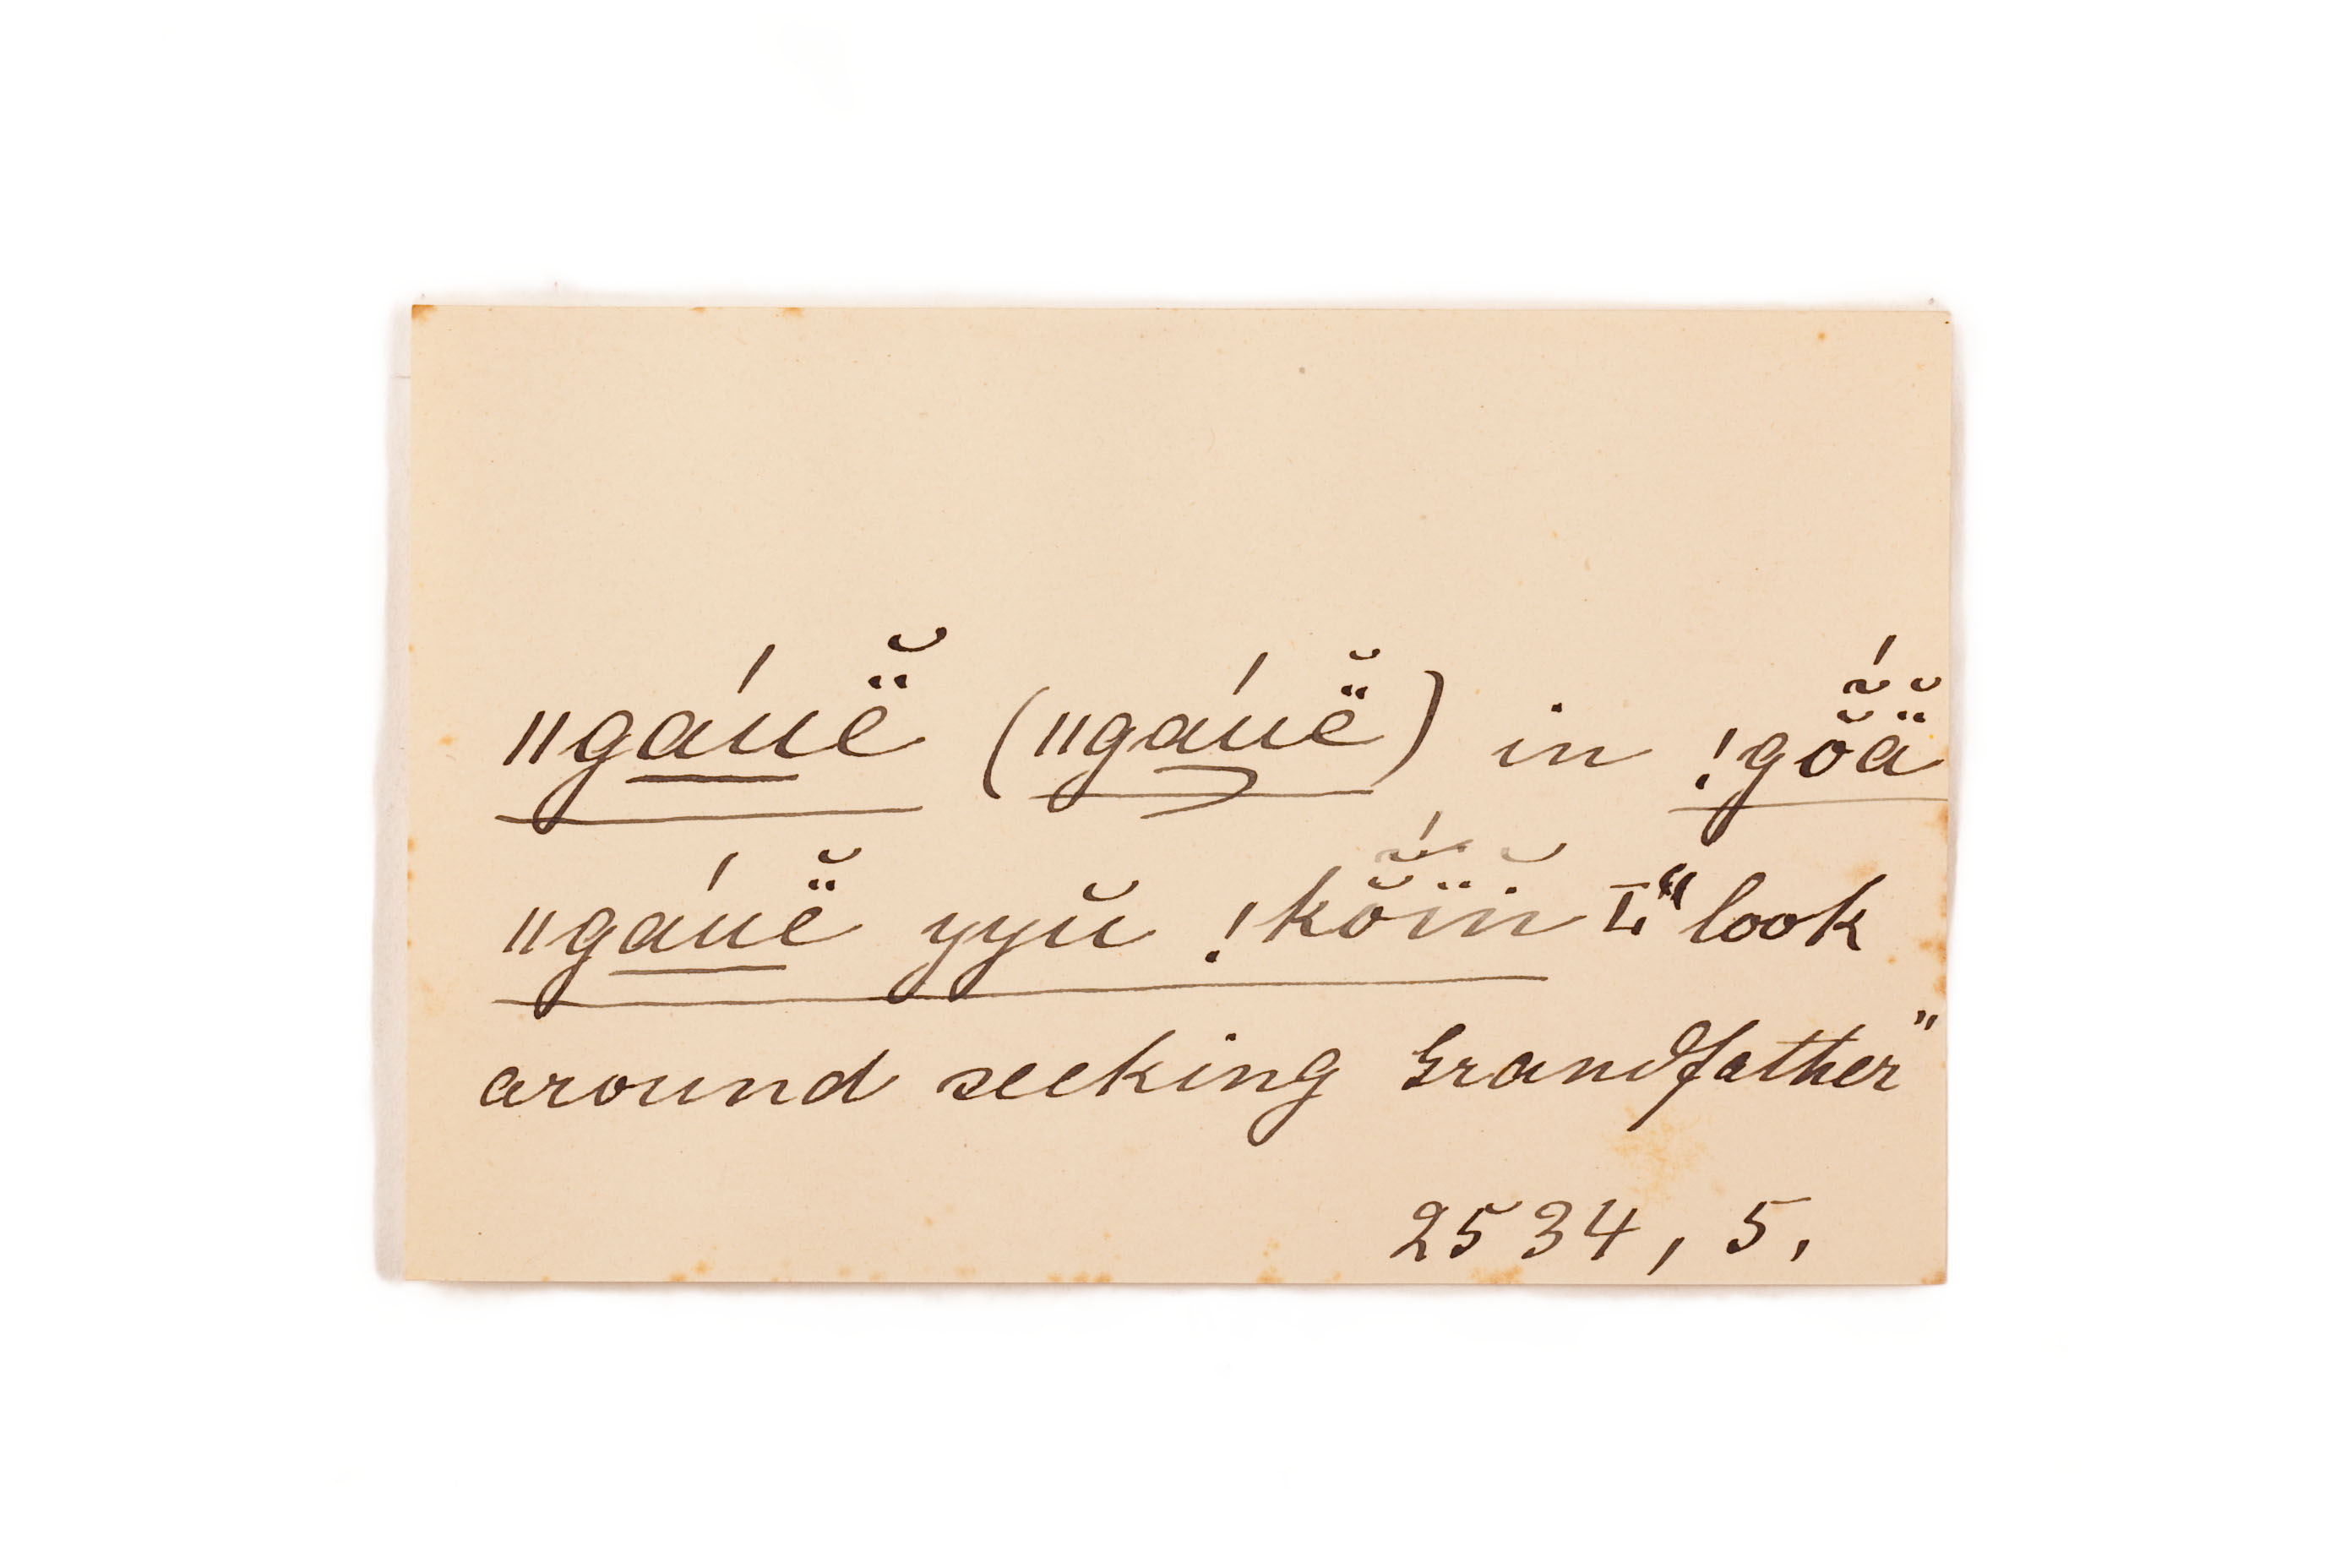 ǁgáuë̆ (ǁgáuë̆) in !gṍ̆ä̆
ǁgáuë̆ yyŭ !kṍ̆ïn̆ I. "look
around seeking Grandfather"
2534, 5.